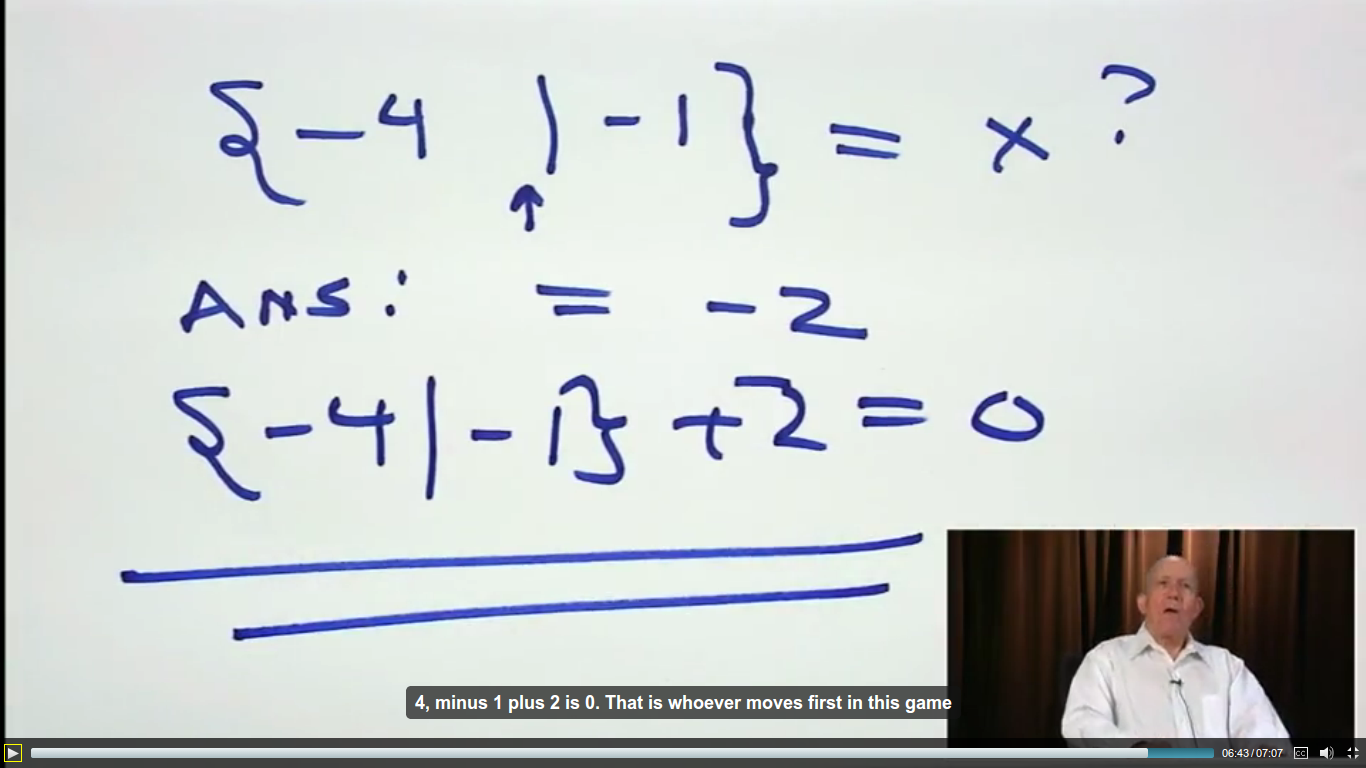 {-4 | -1} = x ?
↑
Ans: = -2
{-4 | -1} + 2 = 0
4, minus 1 plus 2 is 0. That is whoever moves first in this game
06:43/07:07 CC